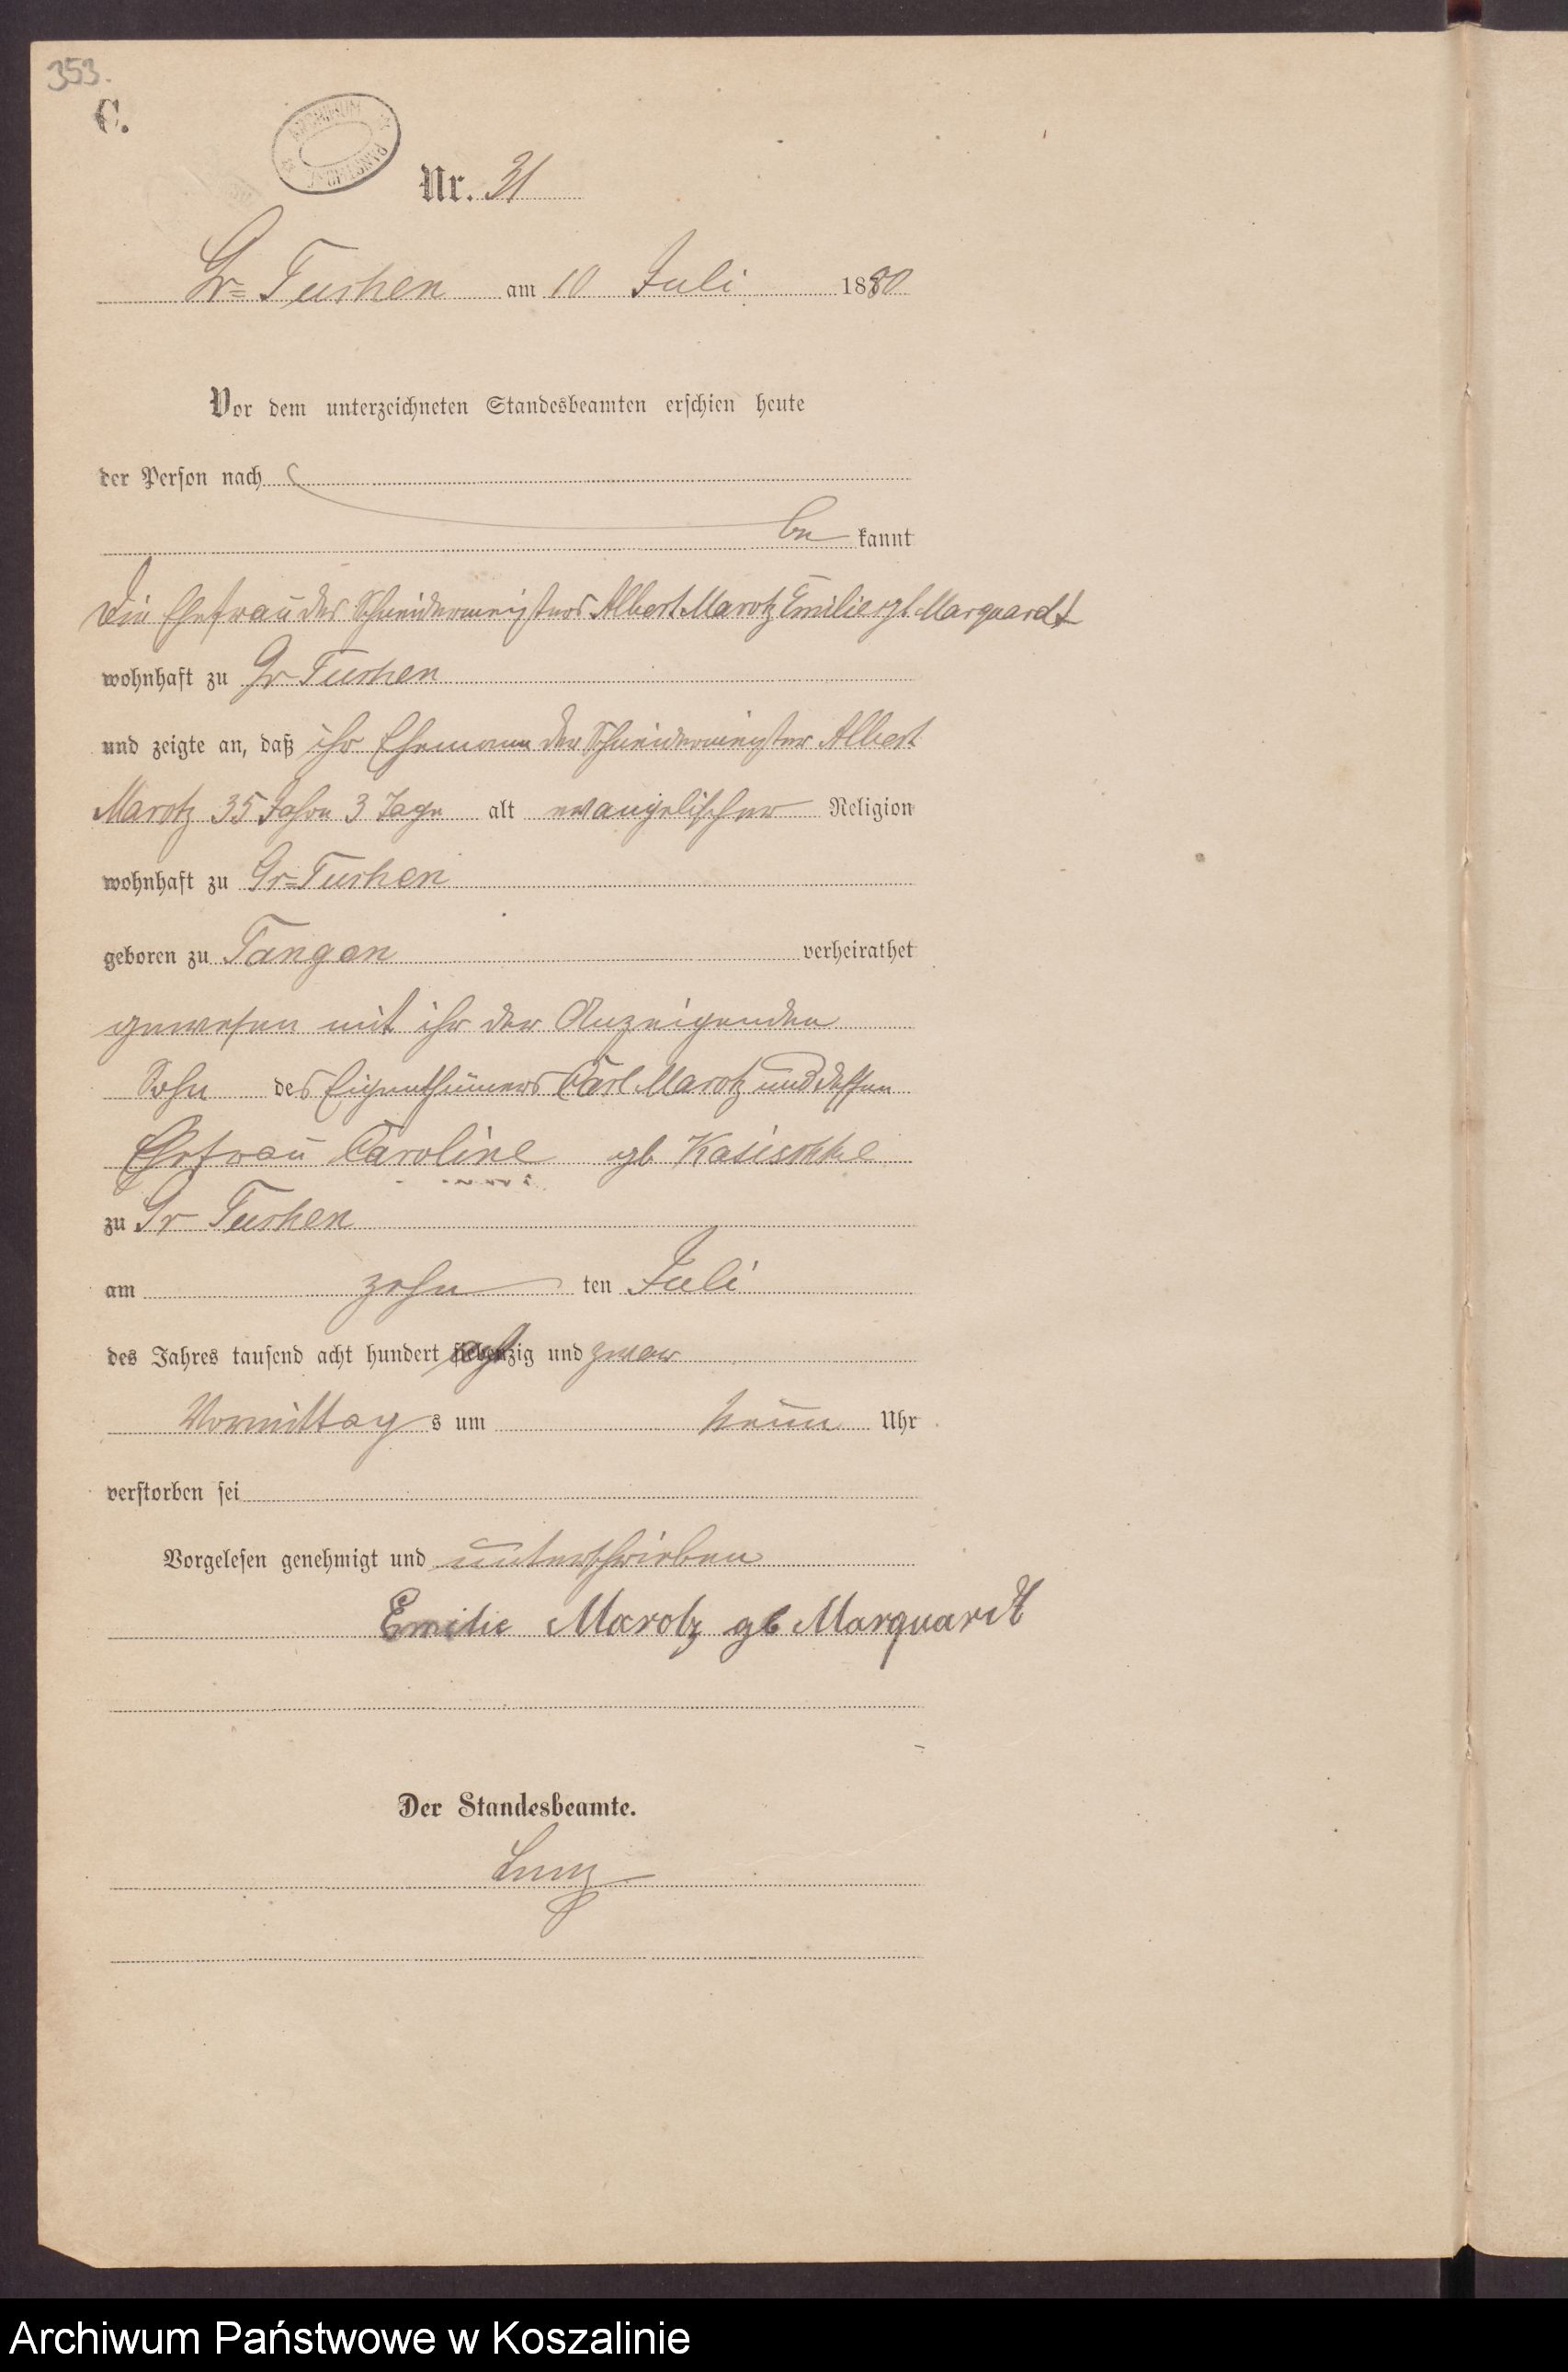 353.
C.
ARCHIWUM
Nr. 31
Gr= Tuchen am 10 Juli 1880
Vor dem unterzeichneten Standesbeamten erschien heute
der Person nach
be kannt
die Ehefrau des Schneidermeisters Albert Marotz Emilie gb Marquardt
wohnhaft zu Gr Tuchen
und zeigte an, daß ihr Ehemann der Schneidermeister Albert
Marotz 35 Jahre 3 Tage alt evangelischer Religion
wohnhaft zu Gr=Tuchen
geboren zu Tangen verheirathet
gewesen mit ihr der Anzeigenden
Sohn des Eigenthümers Carl Marotz und dessen
Ehefrau Caroline gb Kasischke
zu Gr Tuchen
am zehn ten Juli
des Jahres tausend acht hundert achtzig und zwar
Vormittag s um neun Uhr
verstorben sei
Vorgelesen genehmigt und unterschrieben
Emilie Marotz gb Marquardt
Der Standesbeamte.
Archiwum Państwowe w Koszalinie